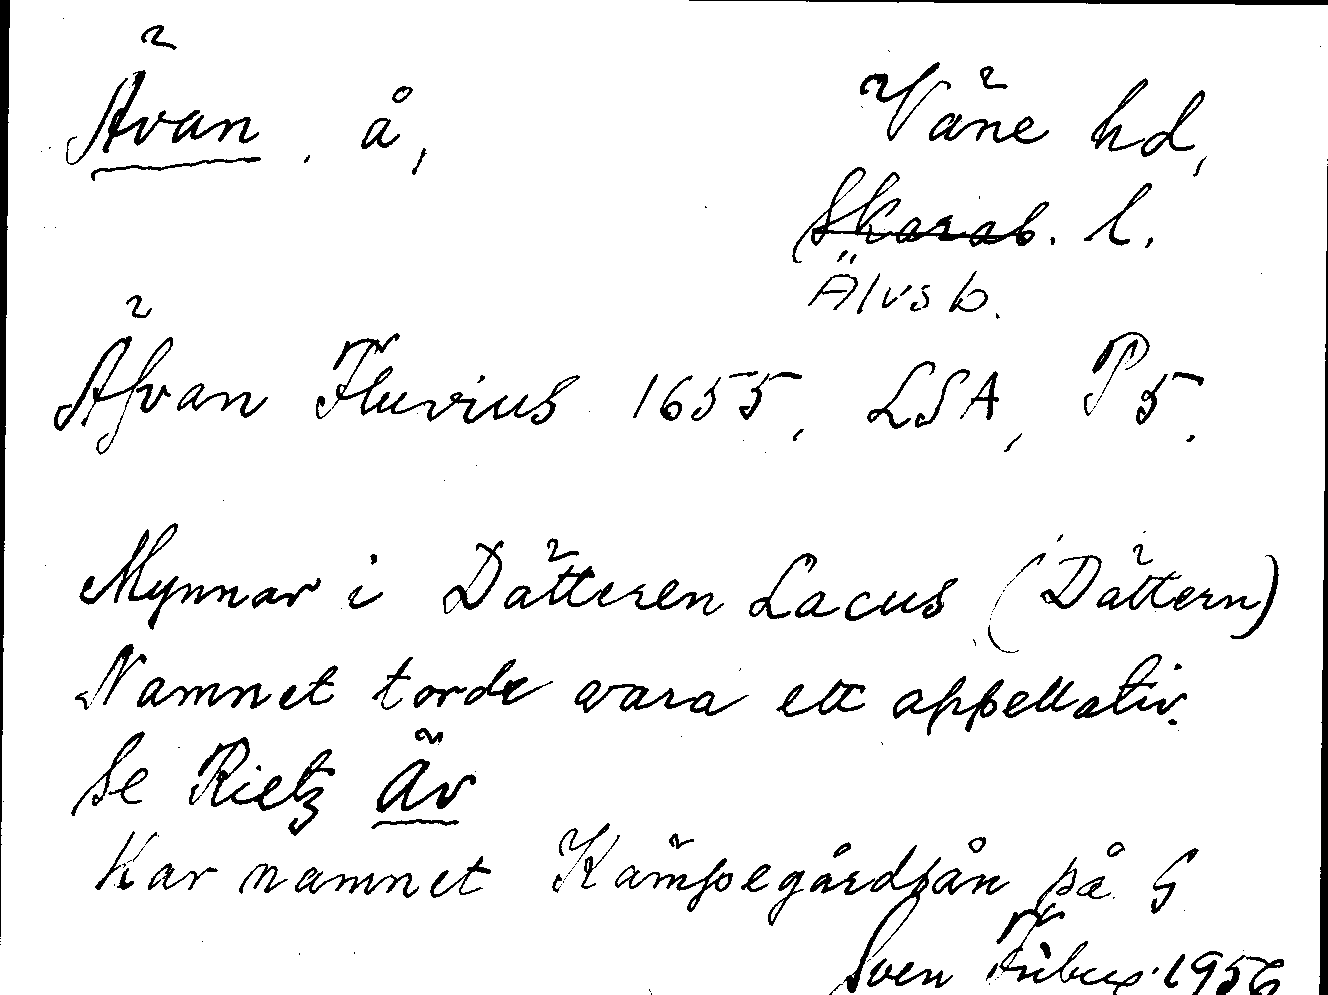 Ävan, å, Väne hd,
Skarab. l.
Älvsb.
Äfvan Fluvius 1655, LSA, P5.
Mynnar i Dätteren Lacus (Dättern)
Namnet torde vara ett appellativ.
Se Rietz äv
Har namnet Kämpegårdsån på G
Sven 1956